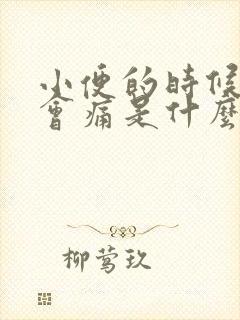 小便的時候
會痛是什麼
柳莺玖